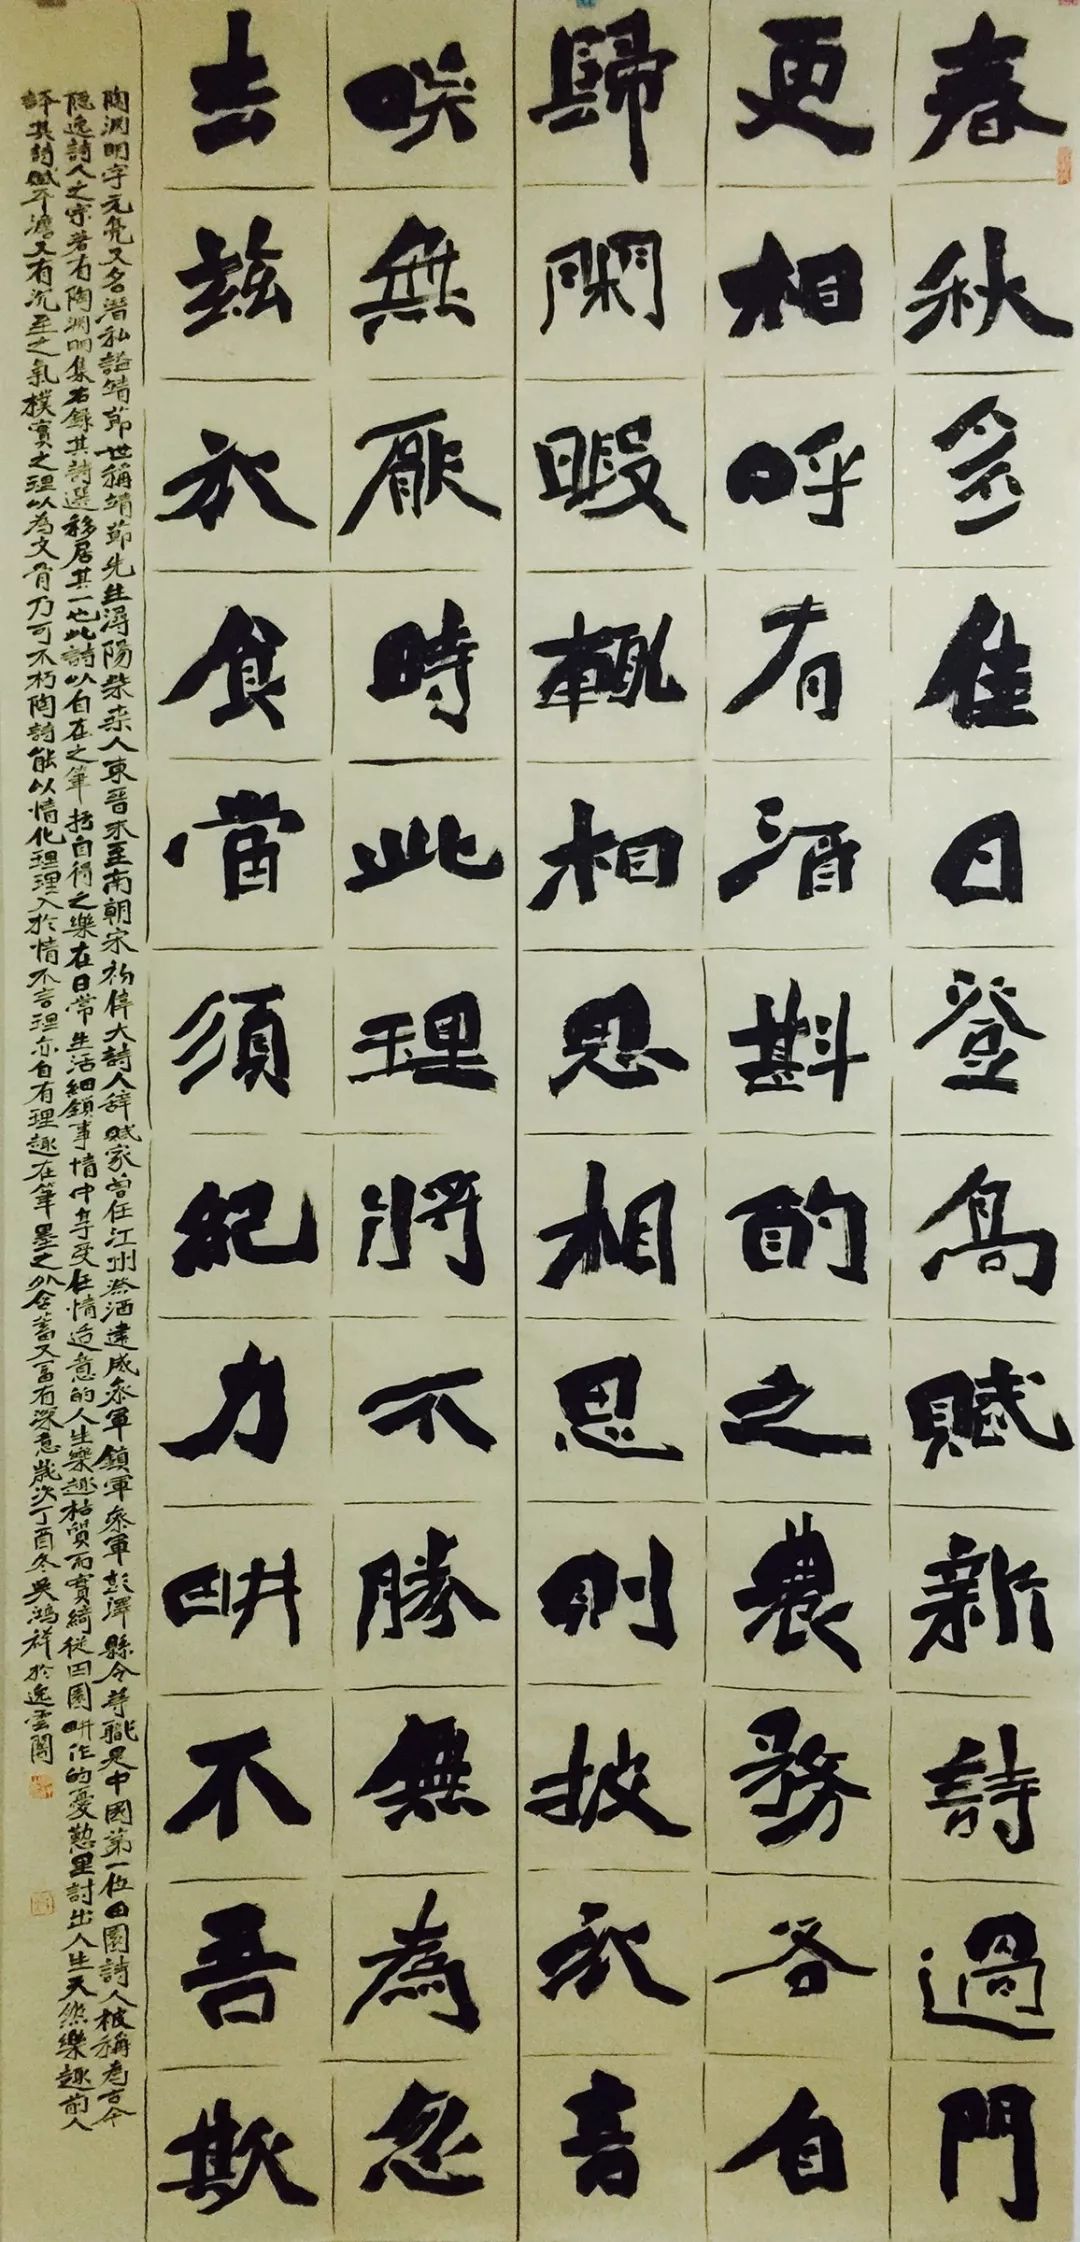 春秋多佳日登高賦新詩過門
更相呼有酒斟酌之農務各自
歸閑暇輒相思相思則披衣言
咲無厭時此理將不勝無為忽
去茲衣食當須紀力耕不吾欺
陶淵明字元亮又名潛私謚靖節世稱靖節先生潯陽柴桑人東晉末至南朝宋初偉大詩人辭賦家曾任江州祭酒建威參軍鎮軍參軍彭澤縣令等職是中國第一位田園詩人被稱為古今
隱逸詩人之宗著有陶淵明集右錄其詩選移居其一也此詩以自在之筆抒自得之樂在日常生活細鎖事情中享受任情適意的人生樂趣枯質而實綺從田園耕作的憂懃里討出人生天然樂趣前人
評其詩賦平澹又有沉至之氣樸實之理以為文骨乃可不朽陶詩能以情化理理入於情不言理亦自有理趣在筆墨之外含蓄又富有深意歲次丁酉冬吳鴻祥於逸雲閣